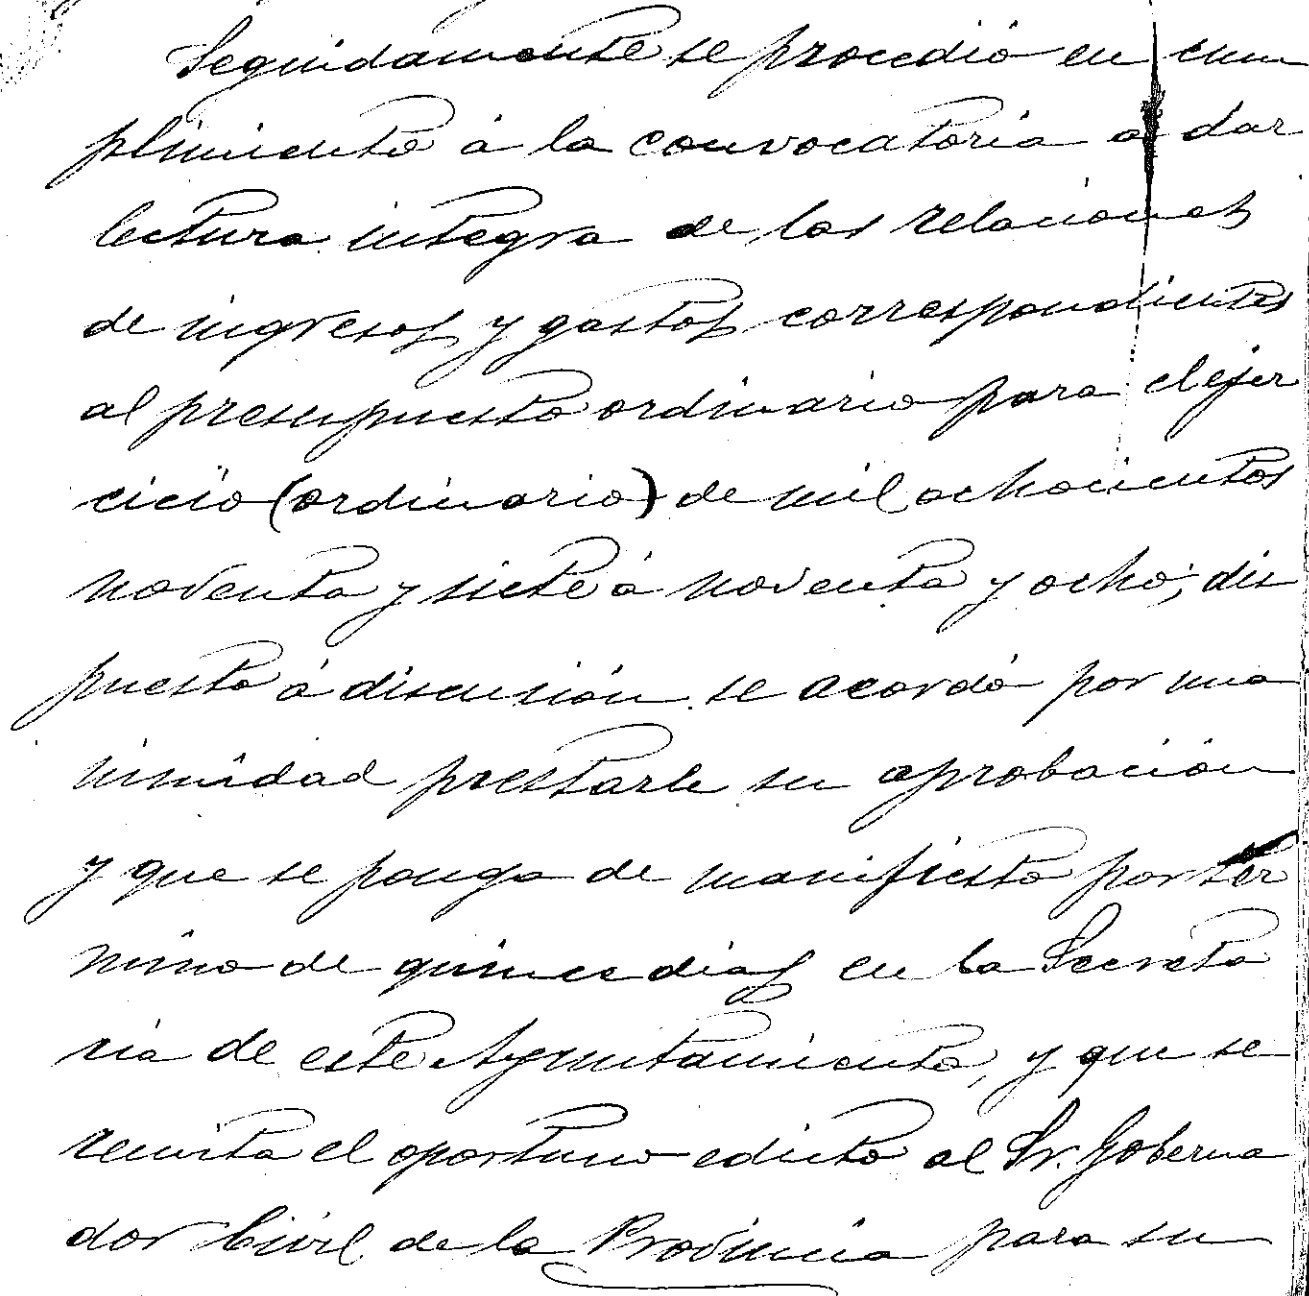 Seguidamente se procedió en cum
plimiento á la convocatoria a dar
lectura integra de las relaciones
de ingresos y gastos correspondientes
al presupuesto ordinario para el ejer
cicio (ordinario) de mil ochocientos
noventa y siete á noventa y ocho; dis
puesto á discusión se acordó por una
nimidad prestarle su aprobación
y que se ponga de manifiesto por tér
mino de quince dias en la Secreta
ria de este Ayuntamiento, y que se
remita el oportuno edicto al Sr. Goberna
dor Civil de la Provincia para su